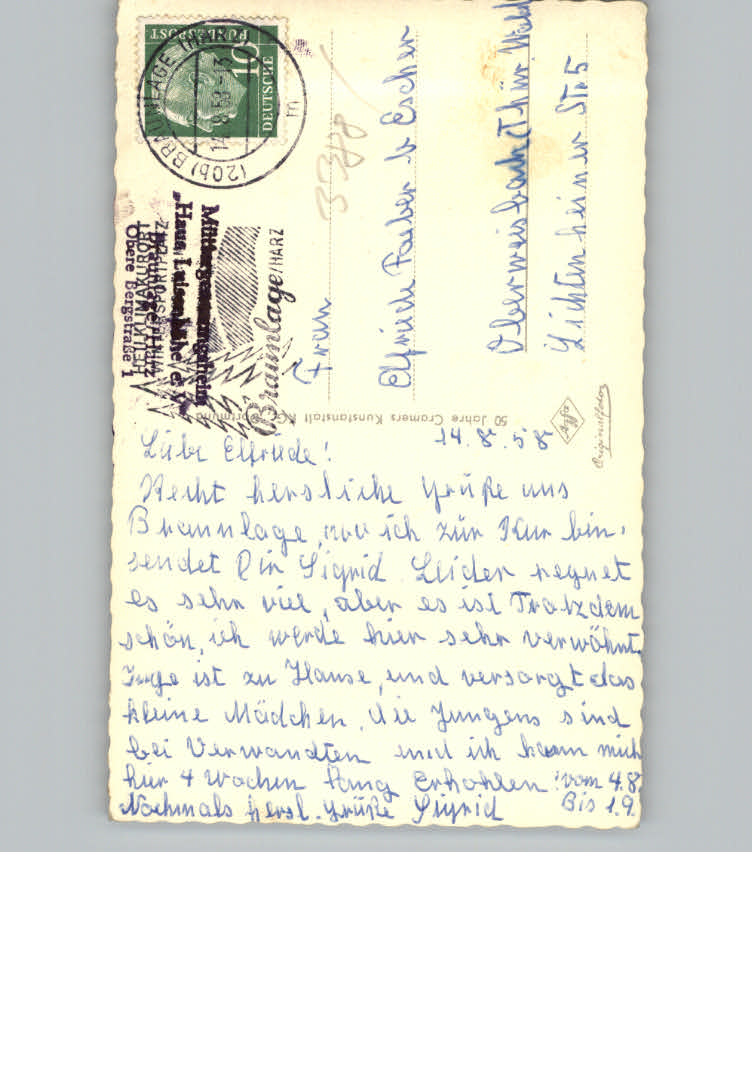 14.8.58
Liebe Elfriede!
Recht herzliche Grüße aus
Braunlage, wo ich zur Kur bin,
sendet Dir Sigrid. Leider regnet
es sehr viel, aber es ist Trotzdem
schön, ich werde hier sehr verwöhnt.
Inge ist zu Hause, und versorgt das
kleine Mädchen, die Jungens sind
bei Verwandten und ich kann mich
hier 4 Wochen lang Erhohlen! vom 4.8.
Bis 1.9.
Nochmals herzl. Grüße Sigrid
Frau
Elfriede Farber b Escher
Oberweisbach (Thür. Wald
Lichtenheiner Str. 5
DEUTSCHE
BUNDESPOST
10
(20b) BRAUNLAGE (HARZ)
m
Braunlage/HARZ
Müttergenesungsheim
"Haus Luisenhöhe e.V.
Braunlage/Harz
Obere Bergstraße 1
50 Jahre Cramers Kunstanstalt KG, Dortmund
Agfa
Originalfoto